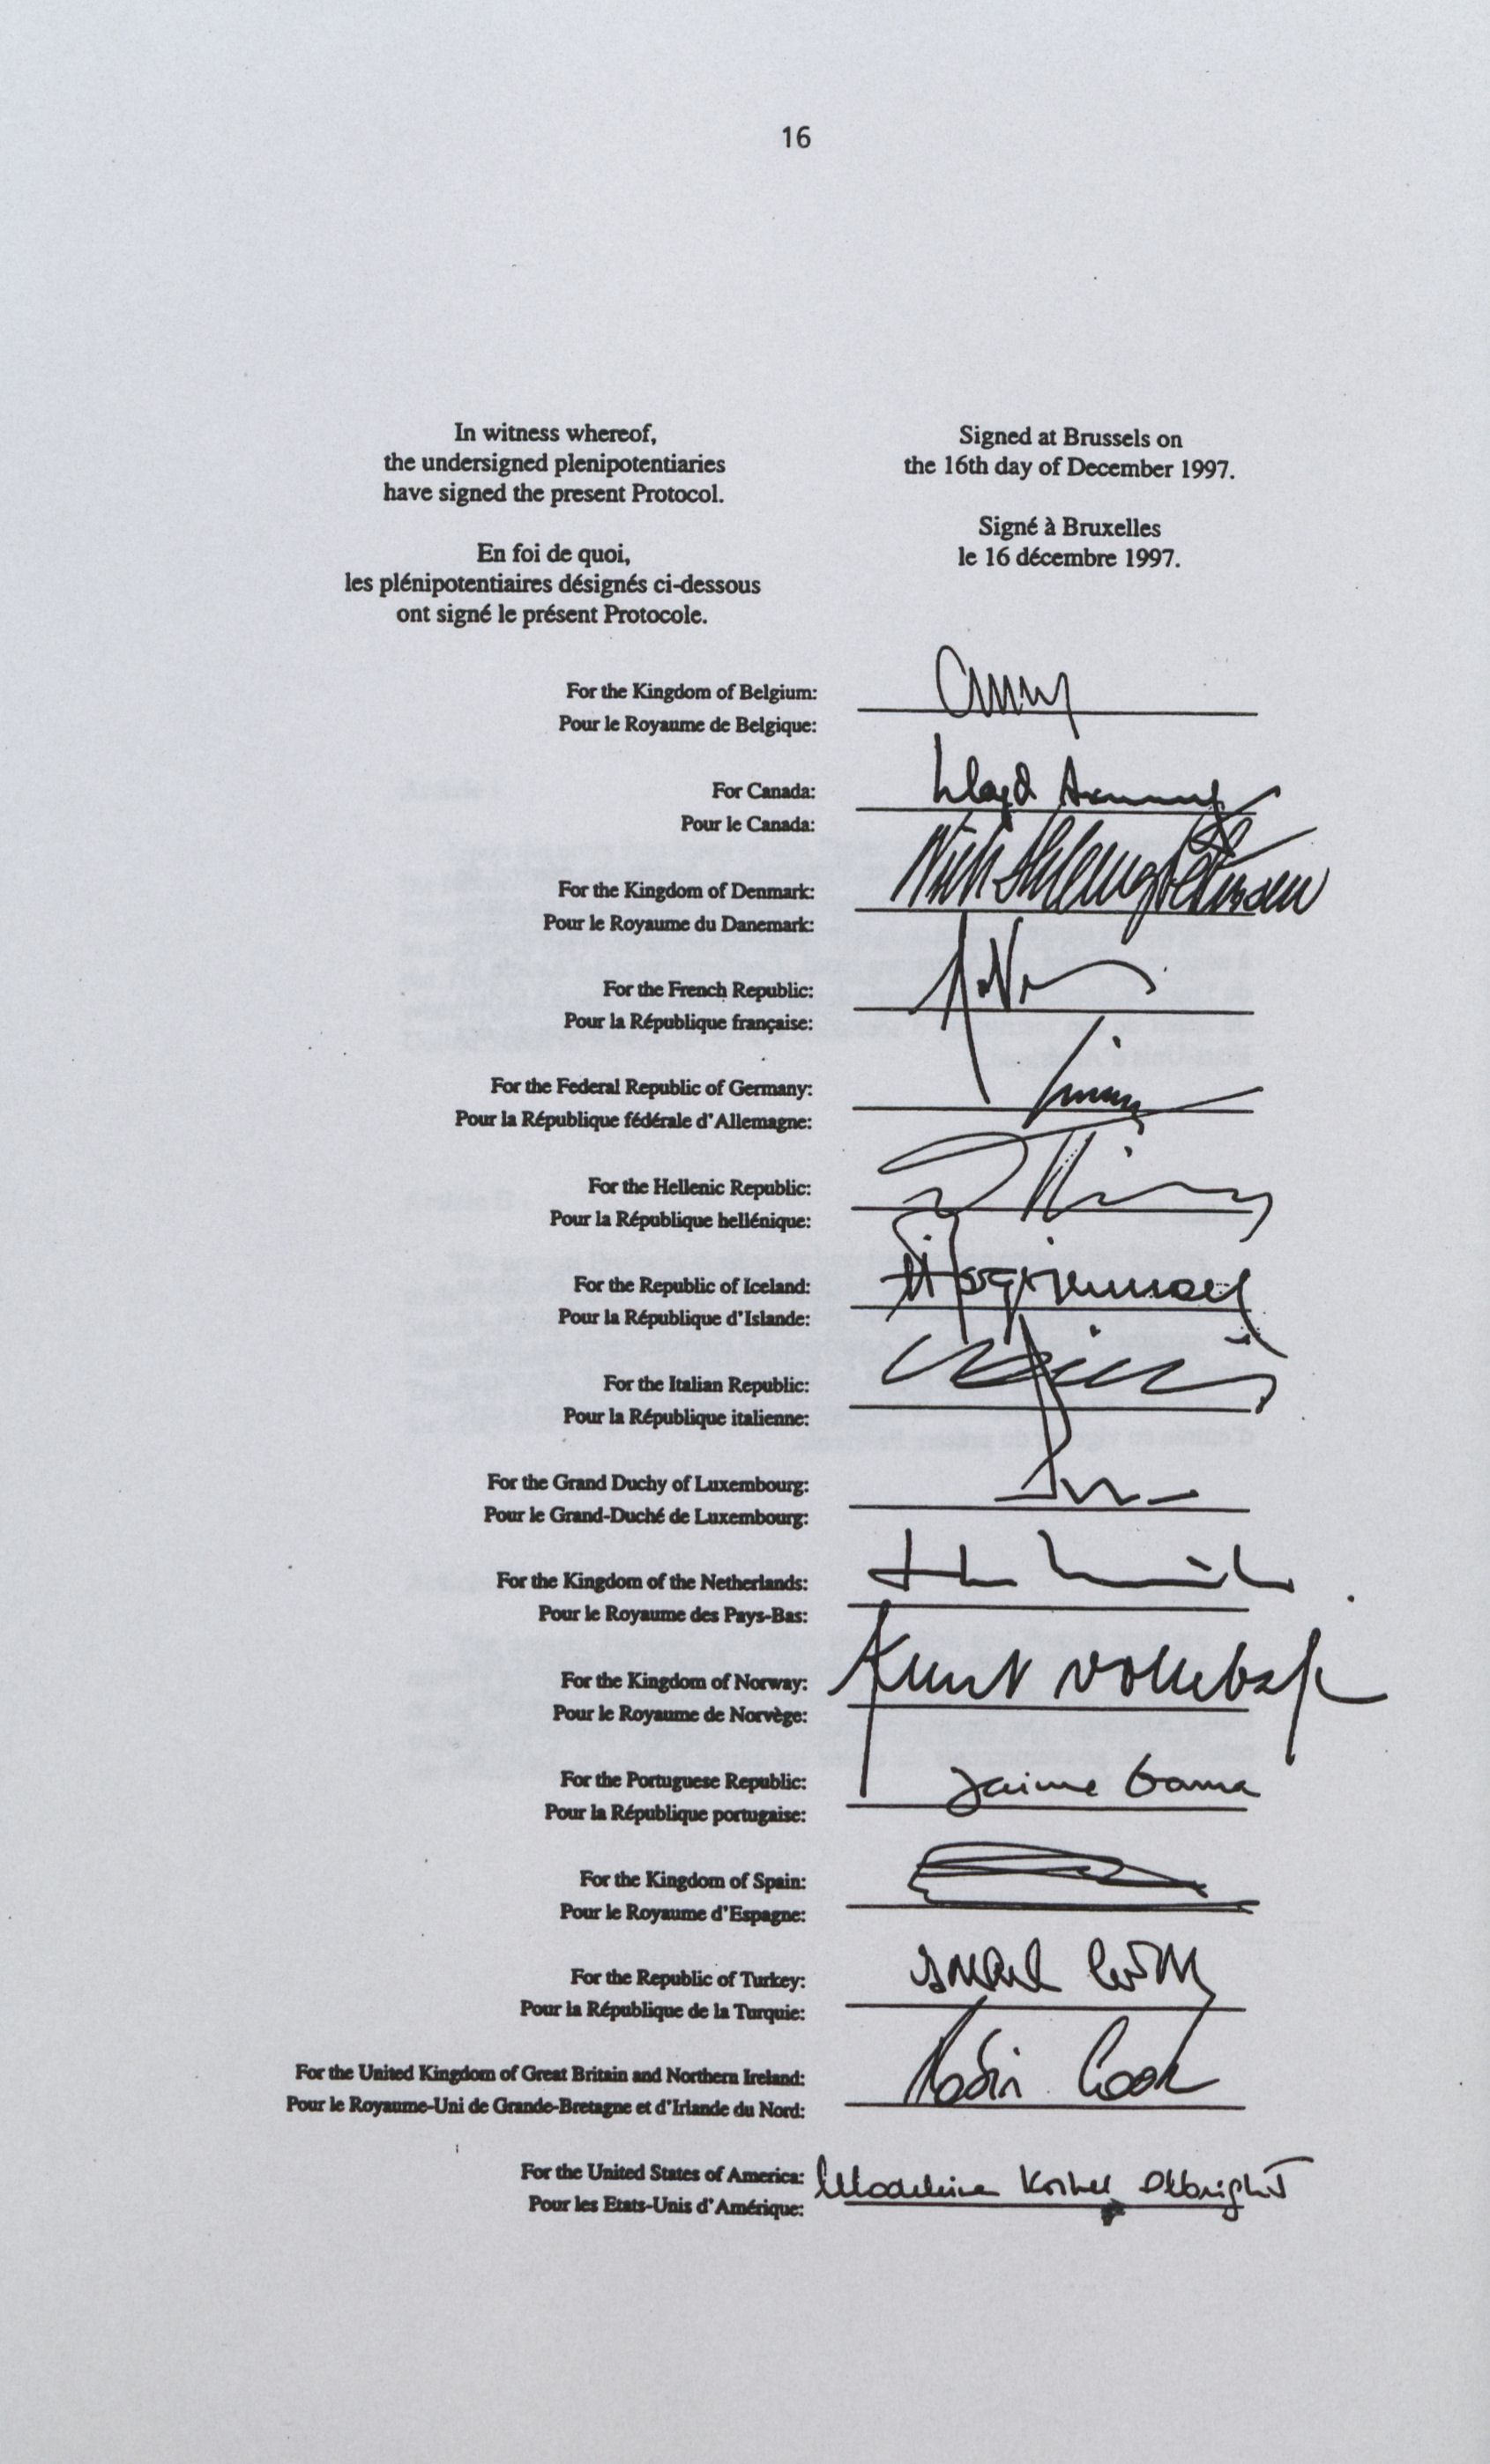 16
In witness whereof,
the undersigned plenipotentiaries
have signed the present Protocol.
En foi de quoi,
les plénipotentiaires désignés ci-dessous
ont signé le présent Protocole.
Signed at Brussels on
the 16th day of December 1997.
Signé à Bruxelles
le 16 décembre 1997.
For the Kingdom of Belgium:
Pour le Royaume de Belgique:
For Canada: Lloyd
Pour le Canada:
For the Kingdom of Denmark:
Pour le Royaume du Danemark:
For the French Republic:
Pour la République française:
For the Federal Republic of Germany:
Pour la République fédérale d'Allemagne:
For the Hellenic Republic:
Pour la République hellénique:
For the Republic of Iceland:
Pour la République d'Islande:
For the Italian Republic:
Pour la République italienne:
For the Grand Duchy of Luxembourg:
Pour le Grand-Duché de Luxembourg:
For the Kingdom of the Netherlands:
Pour le Royaume des Pays-Bas:
For the Kingdom of Norway: Knut Vollebæk
Pour le Royaume de Norvège:
For the Portuguese Republic: Jaime Gama
Pour la République portugaise:
For the Kingdom of Spain:
Pour le Royaume d'Espagne:
For the Republic of Turkey: Ismail Cem
Pour la République de la Turquie:
For the United Kingdom of Great Britain and Northern Ireland: Robin Cook
Pour le Royaume-Uni de Grande-Bretagne et d'Irlande du Nord:
For the United States of America: Madeleine Korbel Albright
Pour les Etats-Unis d'Amérique: